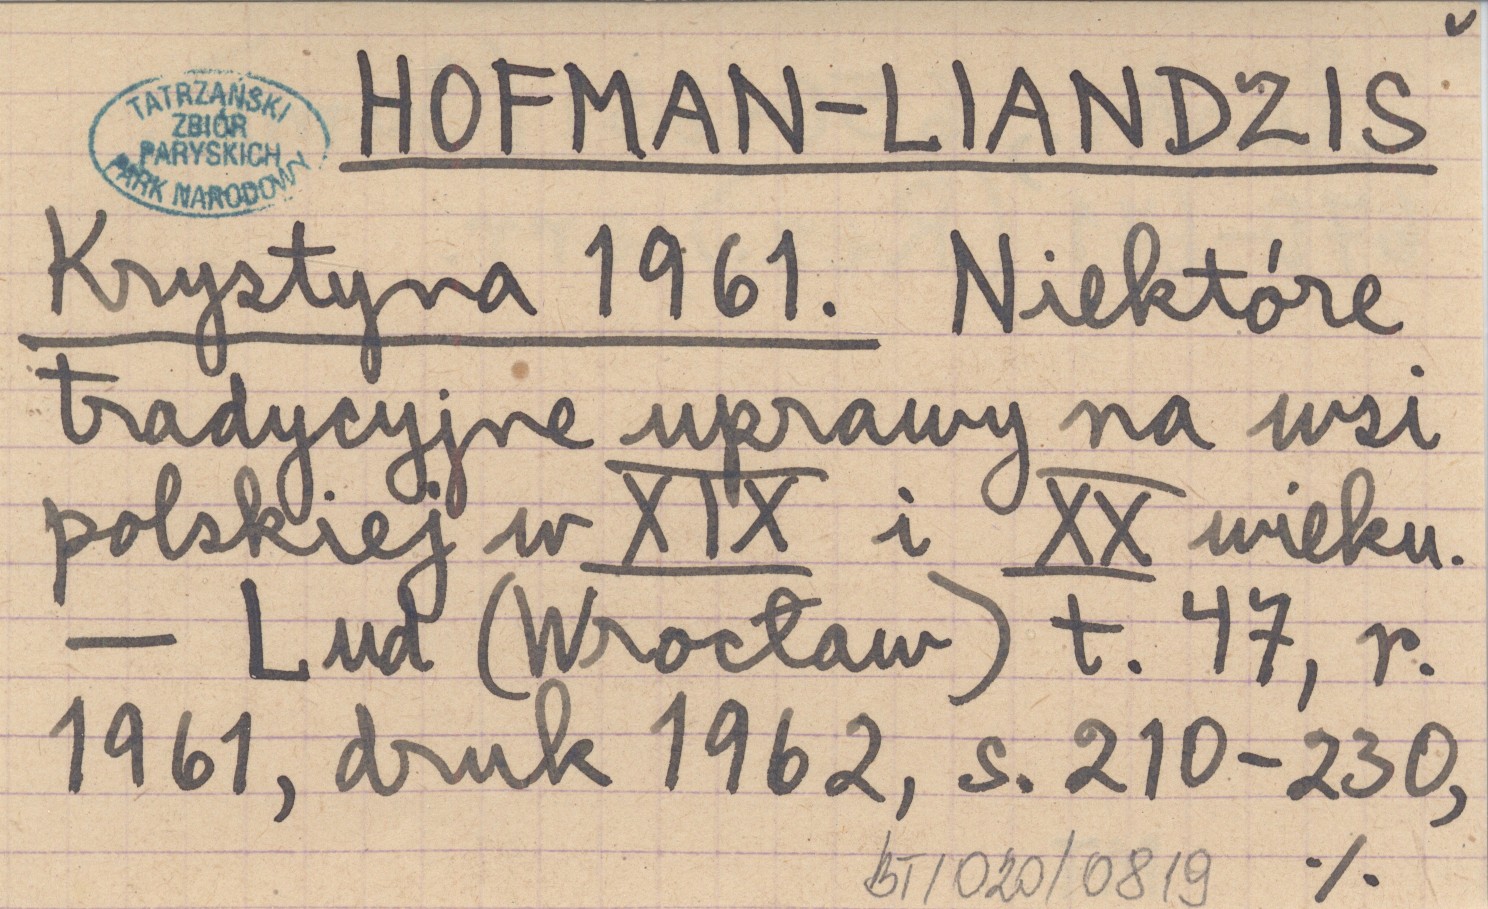 TATRZAŃSKI
ZBIÓR
PARYSKICH
PARK NARODOWY
HOFMAN-LIANDZIS
Krystyna 1961. Niektóre
tradycyjne uprawy na wsi
polskiej w XIX i XX wieku.
— Lud (Wrocław) t. 47, r.
1961, druk 1962, s. 210-230,
BT/020/0819 ·/.